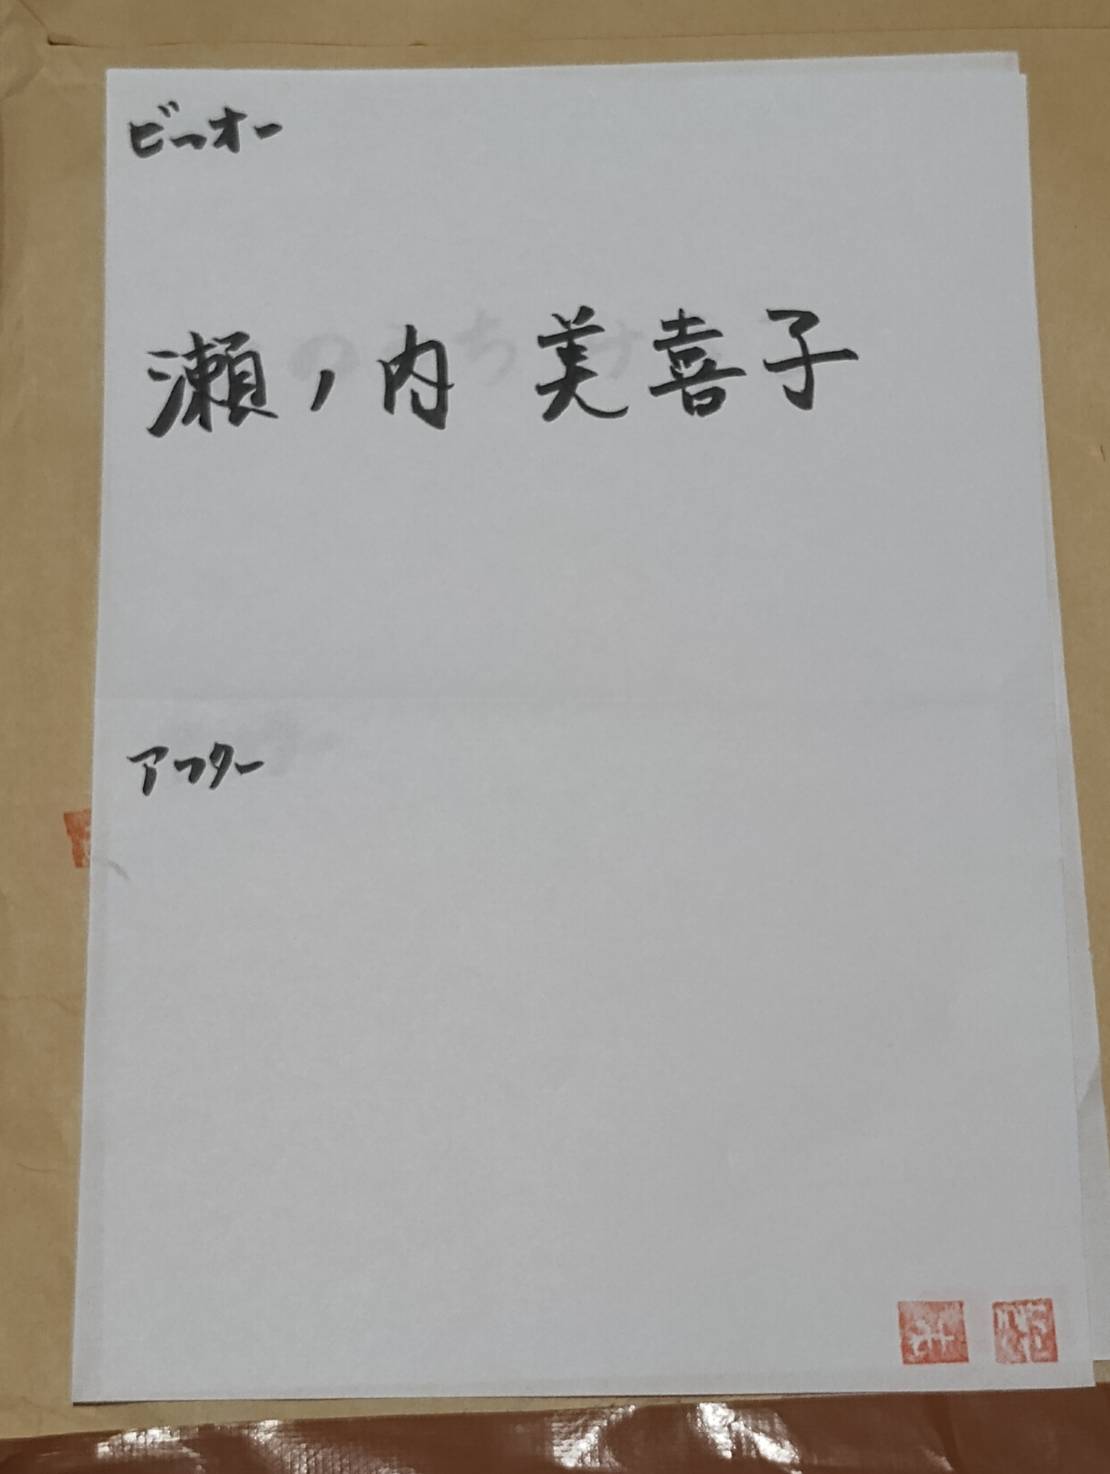 ビフォー
瀬ノ内 美喜子
アフター